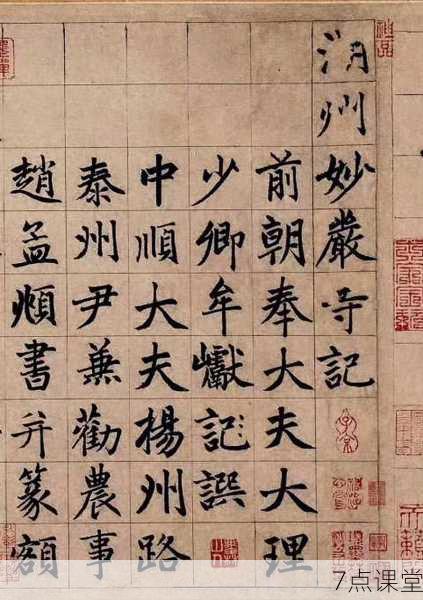 湖州妙嚴寺記
前朝奉大夫大理
少卿牟巘記譔
中順大夫揚州路
泰州尹兼勸農事
趙孟頫書并篆額
7点课堂